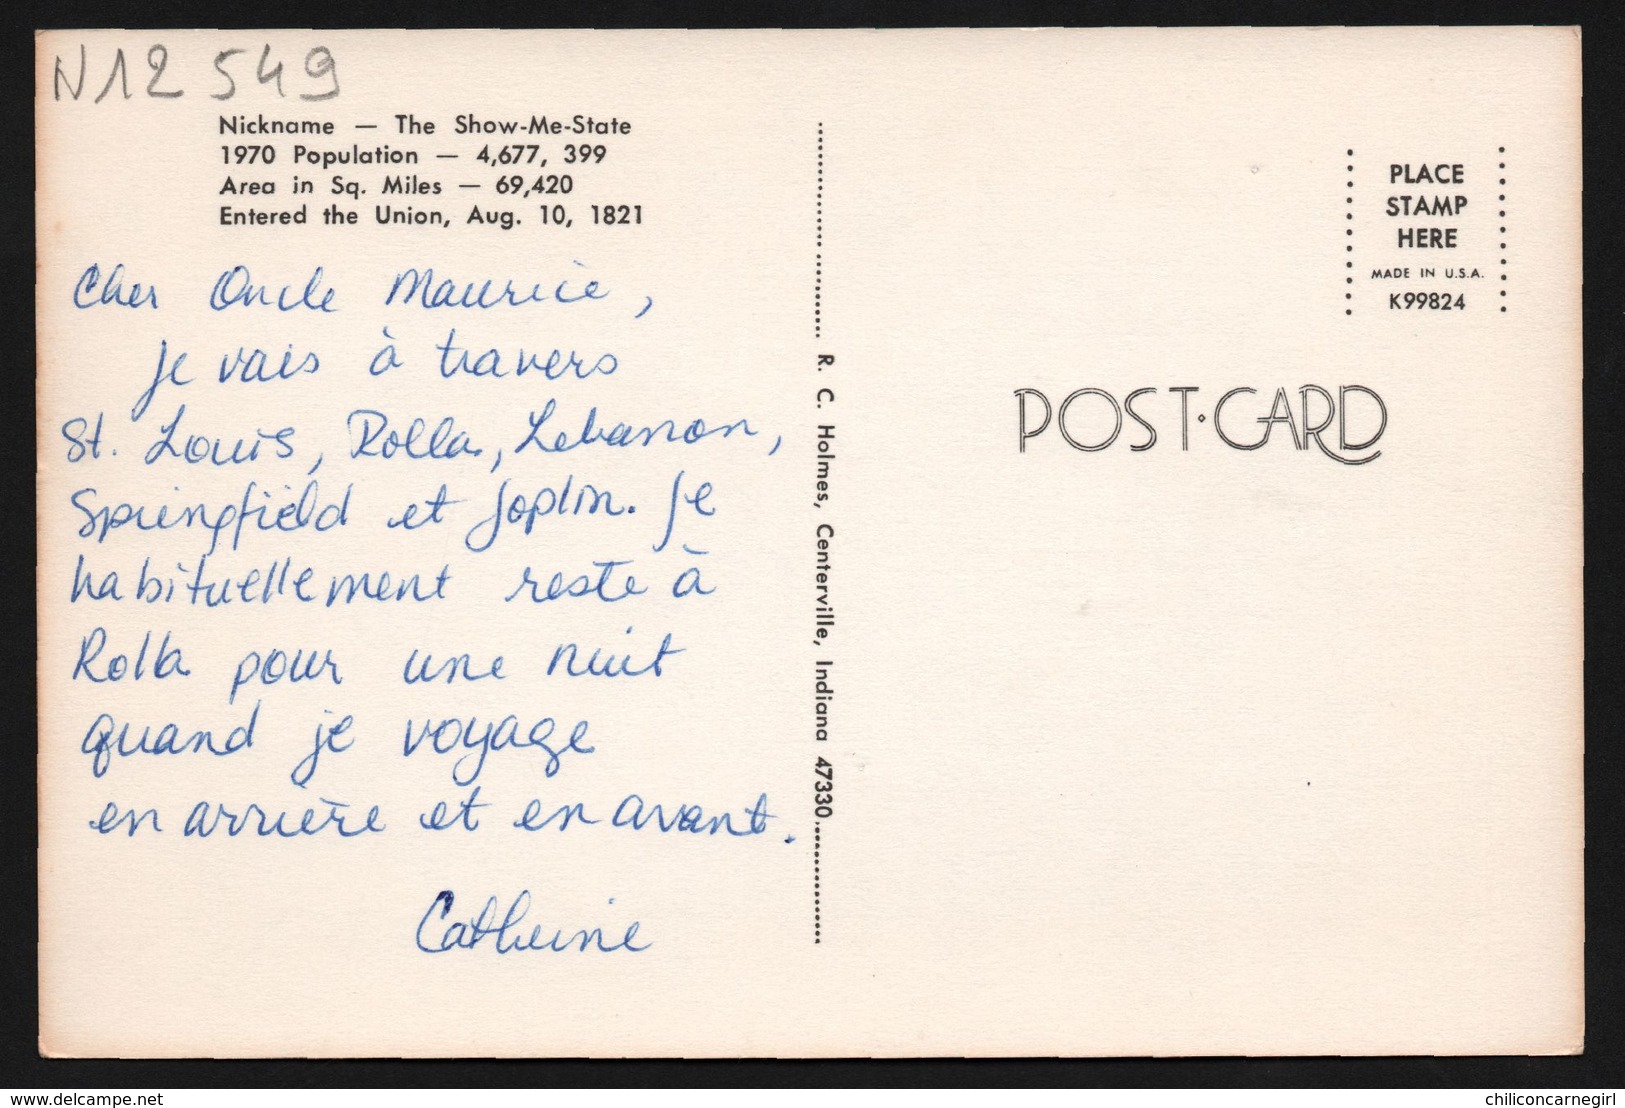 N12 549
Nickname — The Show-Me-State
1970 Population — 4,677, 399
Area in Sq. Miles — 69,420
Entered the Union, Aug. 10, 1821
Cher Oncle Maurice,
je vais à travers
St. Louis, Rolla, Lebanon,
Springfield et Joplin. Je
habituellement reste à
Rolla pour une nuit
quand je voyage
en arrière et en avant.
Catherine
R. C. Holmes, Centerville, Indiana 47330
PLACE
STAMP
HERE
MADE IN U.S.A.
K99824
POST·CARD
delcampe.net
chiliconcarnegirl